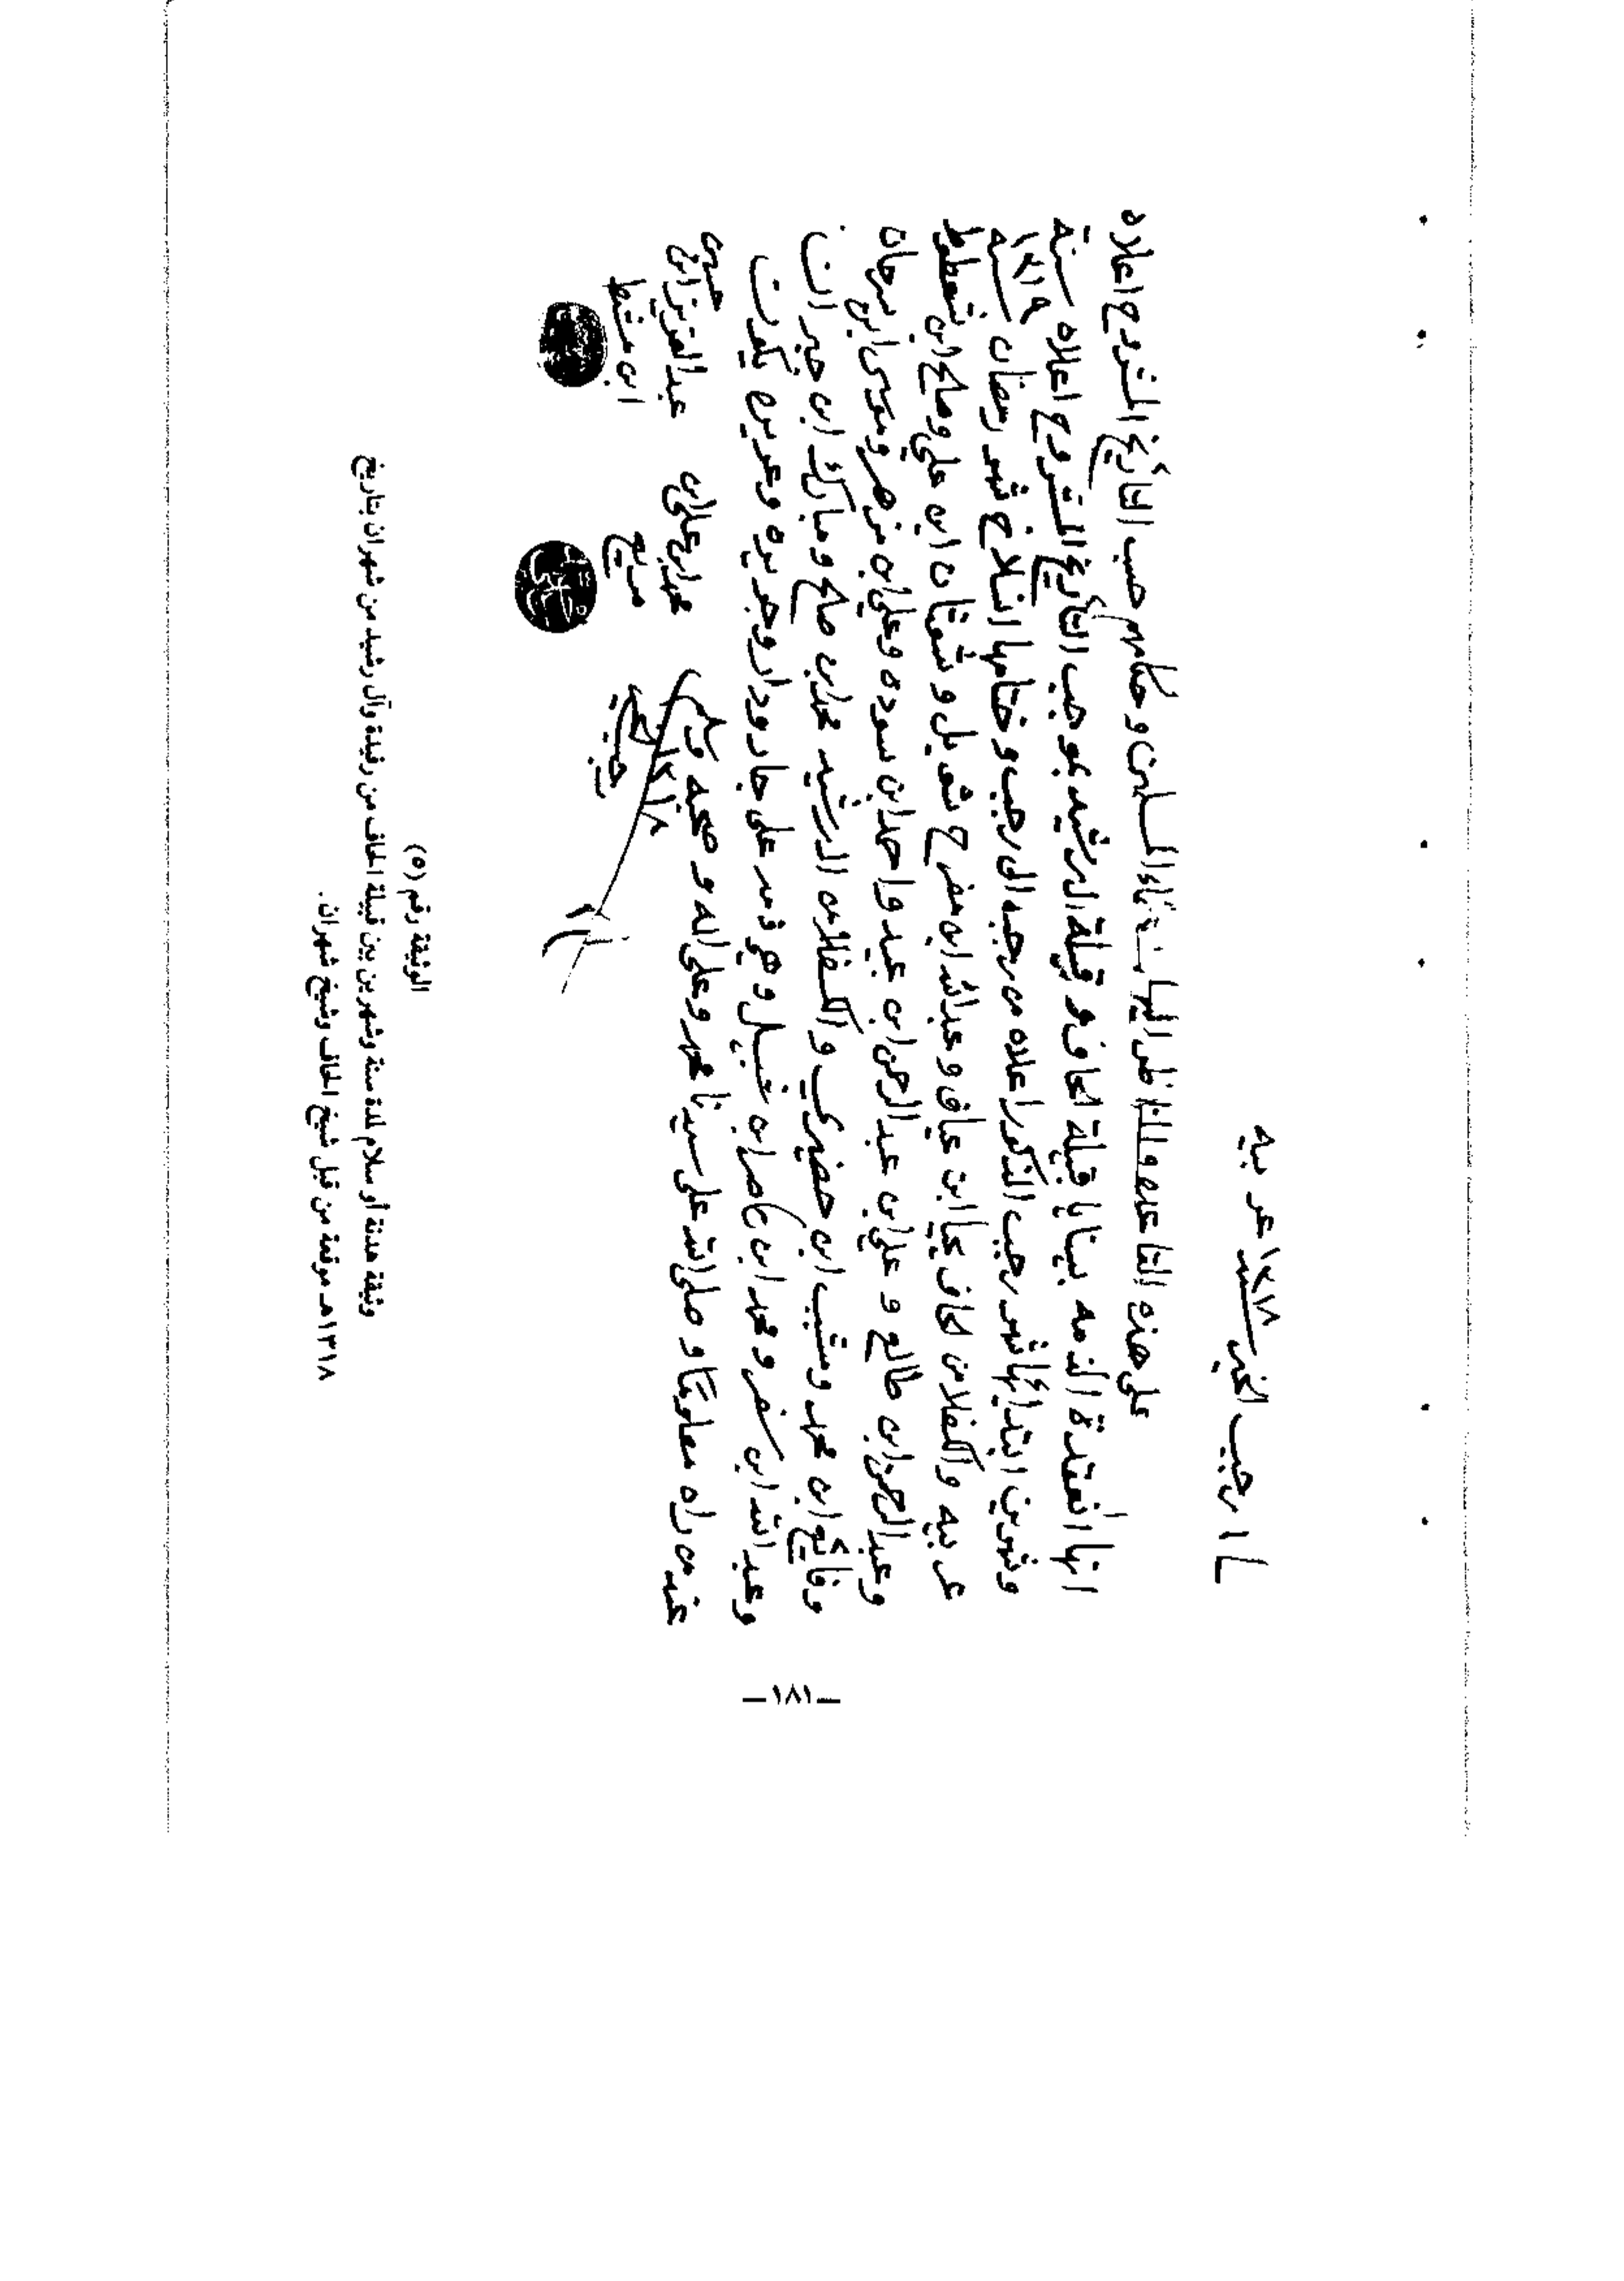 ١ رجب الخير سنة ١٣١٨ عربيه
على هذه القاعده والناظر اليها من المسلمين وحكامهم حسب التأريخ المشروح اعلاه
انها أنعقدة الذمه بينا يا قبيلة الحاف وقبيلة ال رشيد بموجب التأريخ المشروح اعلاه سنة
وشهرين ابتدائها شهر رجب المذكور اعلاه من رجب الى رجب وختامها انسلاخ شهر رمضان سنه ١٣١٩
عربيه والكفلا من الحاف يحيا ابن عياف وعبدالله ابن مفرح شعيل وشعتان ابن علي وصالح ابن شعطوط
وعبدالرحمن ابن طالع وعلي ابن عبدالرحمن ابن عبيد واحمد ابن سوده وعلي ابن مزهر وموسى ابن سرحان
وفايع ابن محمد ومشبب ابن حضيري والكفلا من ال رشيد محمد ابن صالح ومبارك ابن جبران
وعبدالله ابن سفر ومحمد ابن ناصر ابن شبيل وهي ذمه على جار ودار وجويره وعوين يكون
عند من راه معلومًا وصلى الله على سيدنا محمد وعلى اله وصحبه وسلم
١٣١٨
محمد ابن علي ابن مريع
عبدالعزيز ابن حسين
ابن مشيط
الوثيقة رقم (٥)
وثيقة هدنة أو سلام لمدة سنة وشهرين بين قبيلة الحاف من رفيدة وآل رشيد من شهران بتاريخ
١٣١٨هـ موقعة من قبل شيخ الحاف وشيخ شهران.
–١٨١–